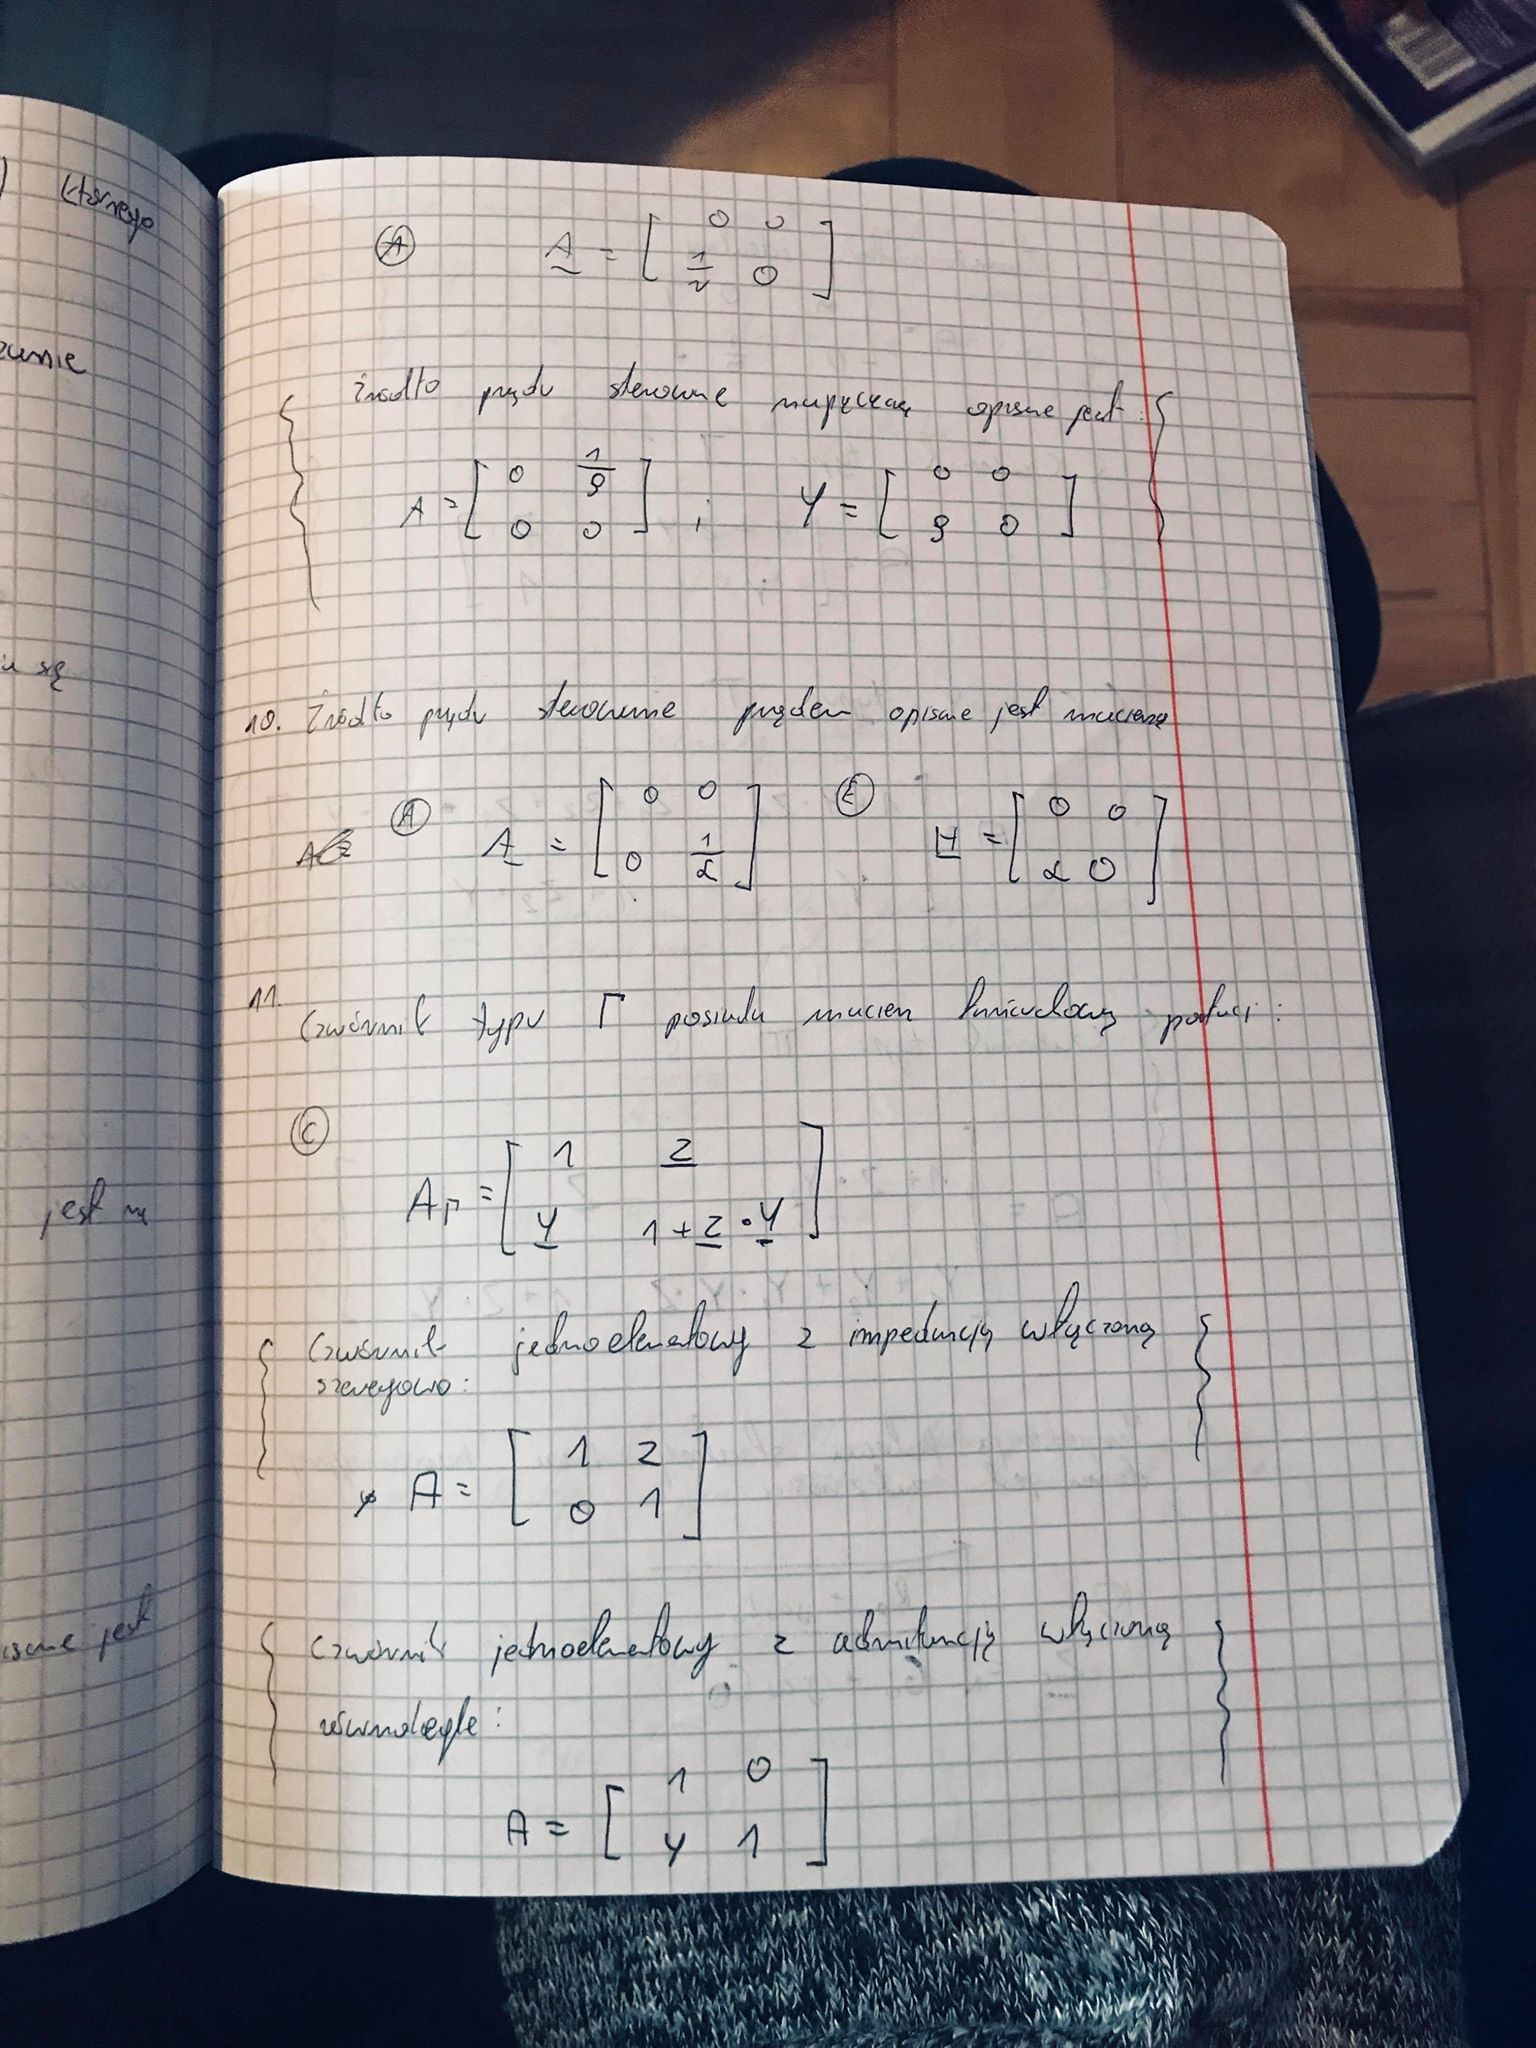 którego
Ⓐ A = [ 0 0
1/r 0 ]
źródło prądu sterowane napięciem opisane jest :
A = [ 0 1/g
0 0 ] ; Y = [ 0 0
g 0 ]
się
10. Źródło prądu sterowanie prądem opisane jest macierzą
Ⓐ A = [ 0 0
0 1/α ] Ⓔ H = [ 0 0
α 0 ]
11.
Czwórnik typu Γ posiada macierz łańcuchową postaci :
Ⓒ
AΓ = [ 1 Z
Y 1 + Z · Y ]
jest
Czwórnik jednoelementowy z impedancją włączoną
szeregowo :
A = [ 1 Z
0 1 ]
jest
Czwórnik jednoelementowy z admitancją włączoną
równolegle :
A = [ 1 0
Y 1 ]